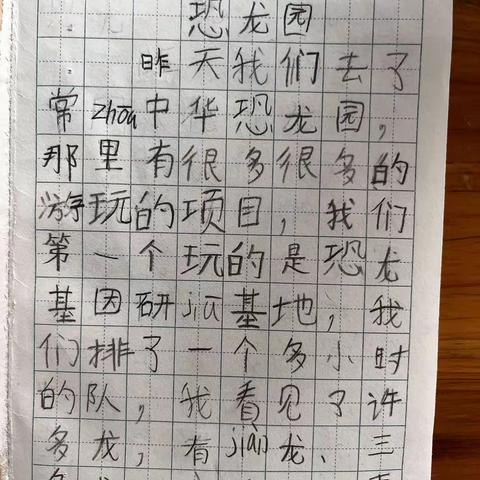 恐龙园
昨天我们去了
常zhōu中华恐龙园，
那里有很多很多的
游玩的项目，我们
第一个玩的是恐龙
基因研jiū基地，我
们排了一个多小时
的队，我看见了许
多龙，有jiàn龙、三